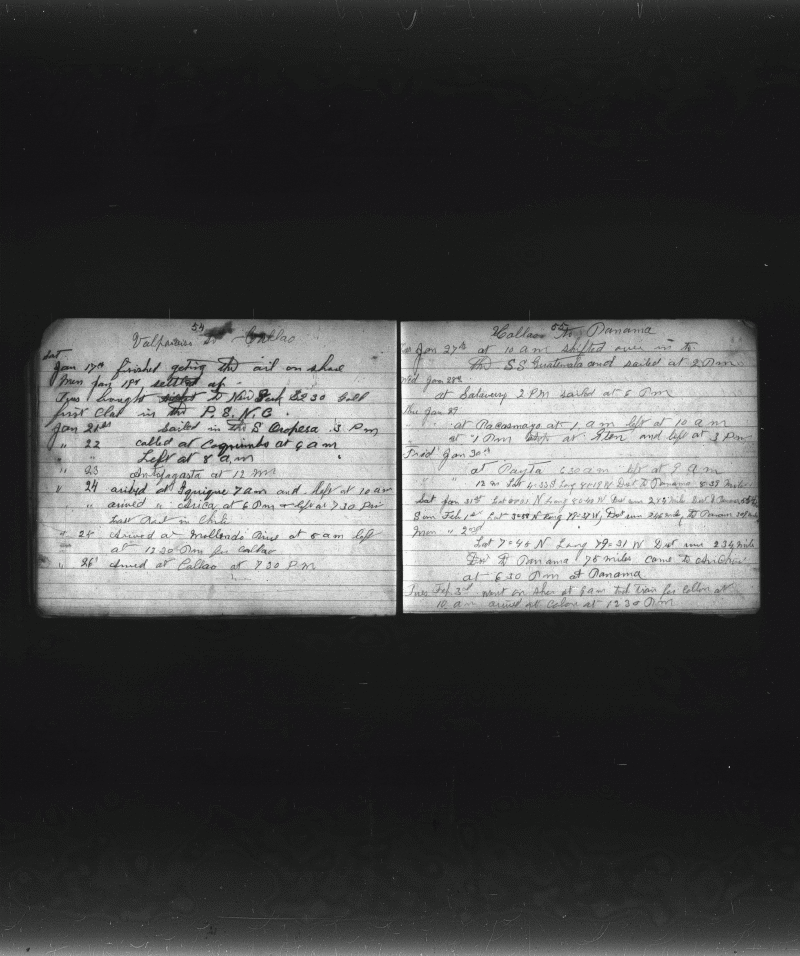 54
Valparaiso to Callao
Sat
Jan 17th finished geting the oil on shore
Mon Jan 19th settled up
Tues bought to New York $230 Gold
first Clas in the P.S.N.C.
Jan 21st sailed in the S Oropesa 3 Pm
" 22 called at Coquimbo at 6 am
" " Left at 8 am
" 23 Antofagasta at 12 Mn
" 24 arived at Iquique 7 am and left at 10 am
" arived " Arica at 6 Pm & left at 7 30 Pm
Last Port in Chile
" 25 Arived at Mollendo Peru at 8 am left
at 12.30 Pm for Callao
" 26 Arived at Callao at 7 30 P.M
55
Callao to Panama
Tues Jan 27th at 10 am shifted over in to
the SS Guatemala and sailed at 2 Pm
Wed Jan 28th
at Salavery 2 PM sailed at 6 Pm
Thu Jan 29
" " at Pacasmayo at 1 am left at 10 am
" at 1 Pm at Eten and left at 3 Pm
Frid Jan 30th
" at Payta 6 30 am left at 9 am
12 m Lat 4-33 S Long W Dist to Panama 838 Miles
Sat Jan 31st Lat N Long W Dist run 283 Miles Dist to Panama
Sun Feb 1st Lat N Long 79-37 W, Dist run miles, to Panama miles
Mon " 2nd
Lat 7-44 N Long 79-31 W Dist run 234 Mile
to Panama 78 miles come to Anchor
at 6 30 Pm at Panama
Tues Feb 3rd went on shore at 8 am took train for Collon at
10 am arived at Colon at 12 30 Pm